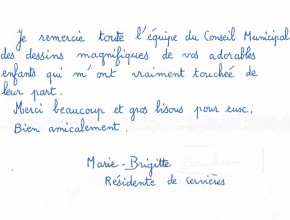 Je remercie toute l'équipe du Conseil Municipal
des dessins magnifiques de vos adorables
enfants qui m'ont vraiment touchée de
leur part.
Merci beaucoup et gros bisous pour eux,
Bien amicalement.
Marie-Brigitte
Résidente de Cervières